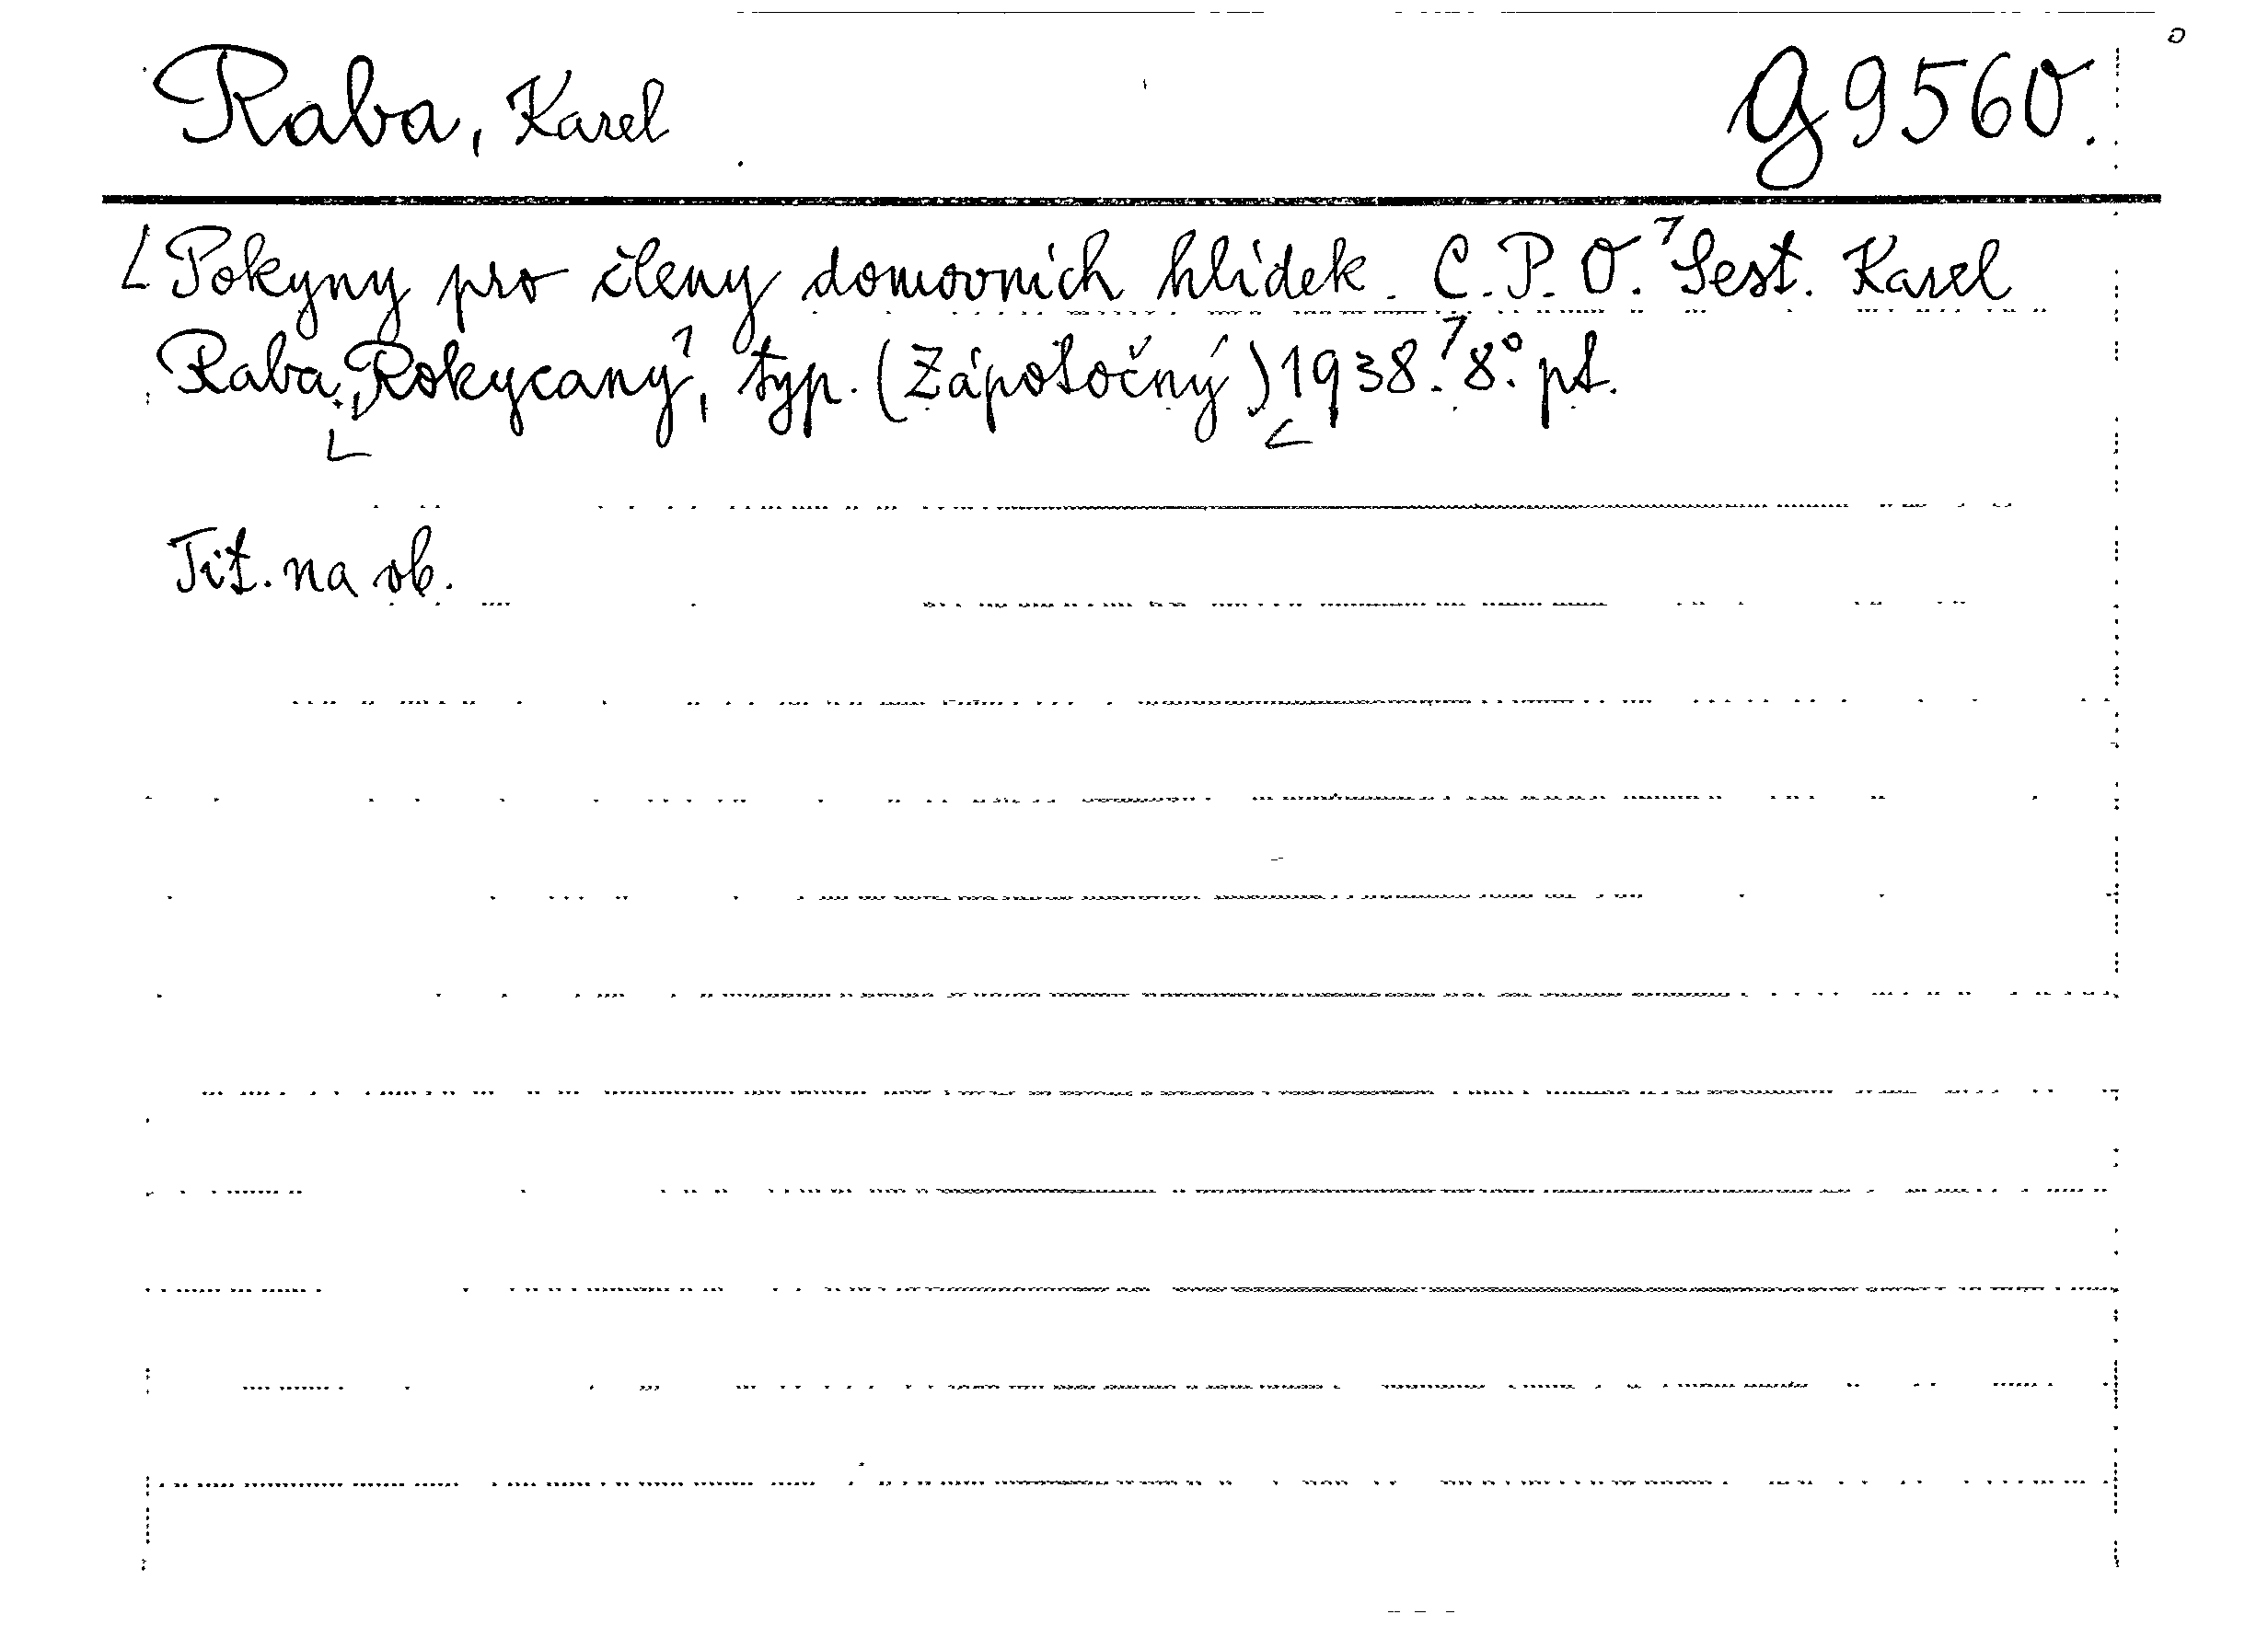 Raba, Karel
G 9560.
Pokyny pro členy domovních hlídek. C.P.O. Sest. Karel
Raba, Rokycany, typ. (Zápotočný) 1938. 8° pt.
Tit. na ob.